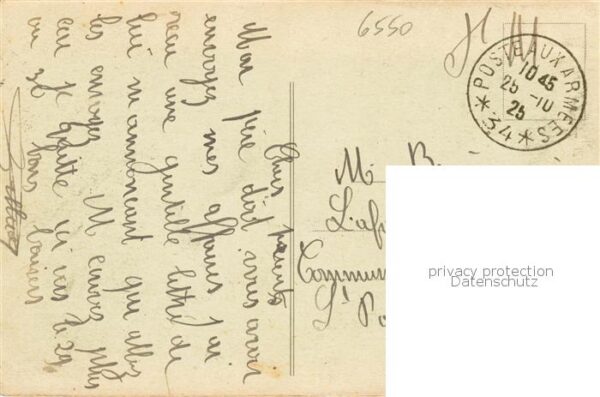 6550
POSTE AUX ARMEES
10 45
25 - 10
25
* 34 *
Chers parents
Mon père doit vous avoir
envoyez mes affaires j'ai
recu une gentille lettre de
lui m'annoncant que allez
les envoyez M envoyez plus
car je quitte ici vers le 29
ou 30 bons baisers
M. B
L'af
Commun
St Po
privacy protection
Datenschutz